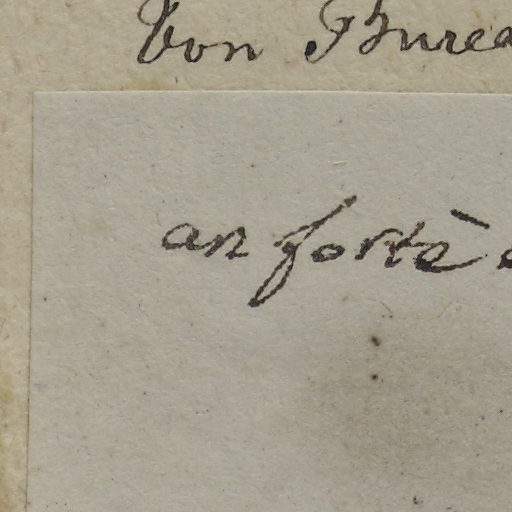 Von Burea
an fortè